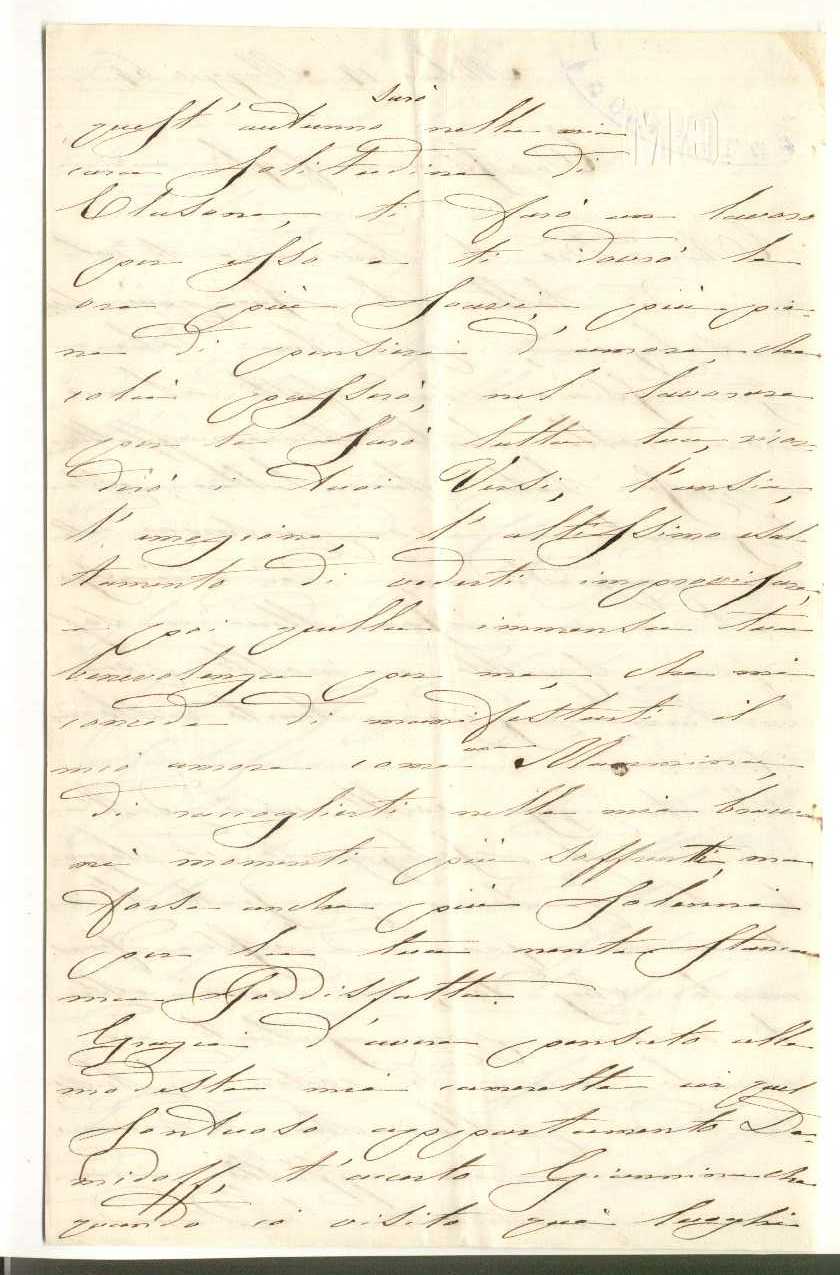 sarò
quest'autunno nella mia
cara Solitudine di
Clusone, ti farò un lavoro
per esso e ti dovrò le
ore più Soavi, più pie-
ne di pensieri d'amore, che
colà passerò, nel lavorare
per te Sarò tutta tua, ricor-
derò i tuoi Versi, l'ansia,
l'emozione, l'altissimo esal-
tamento di vederti improvisare,
e poi quella immensa tua
benevolenza per me, che mi
concede di manifestarti il
mio amore come una Mammina,
di raccoglierti nelle mie braccia
nei momenti più soffriti, ma
forse anche più Solenni
per la tua mente Stanca
ma Soddisfatta.
Grazie d'avere pensato alla
modesta mia cameretta in quel
Sontuoso appartamento De-
midoff, t'accerto Giannina che
quando io visito quei luoghi